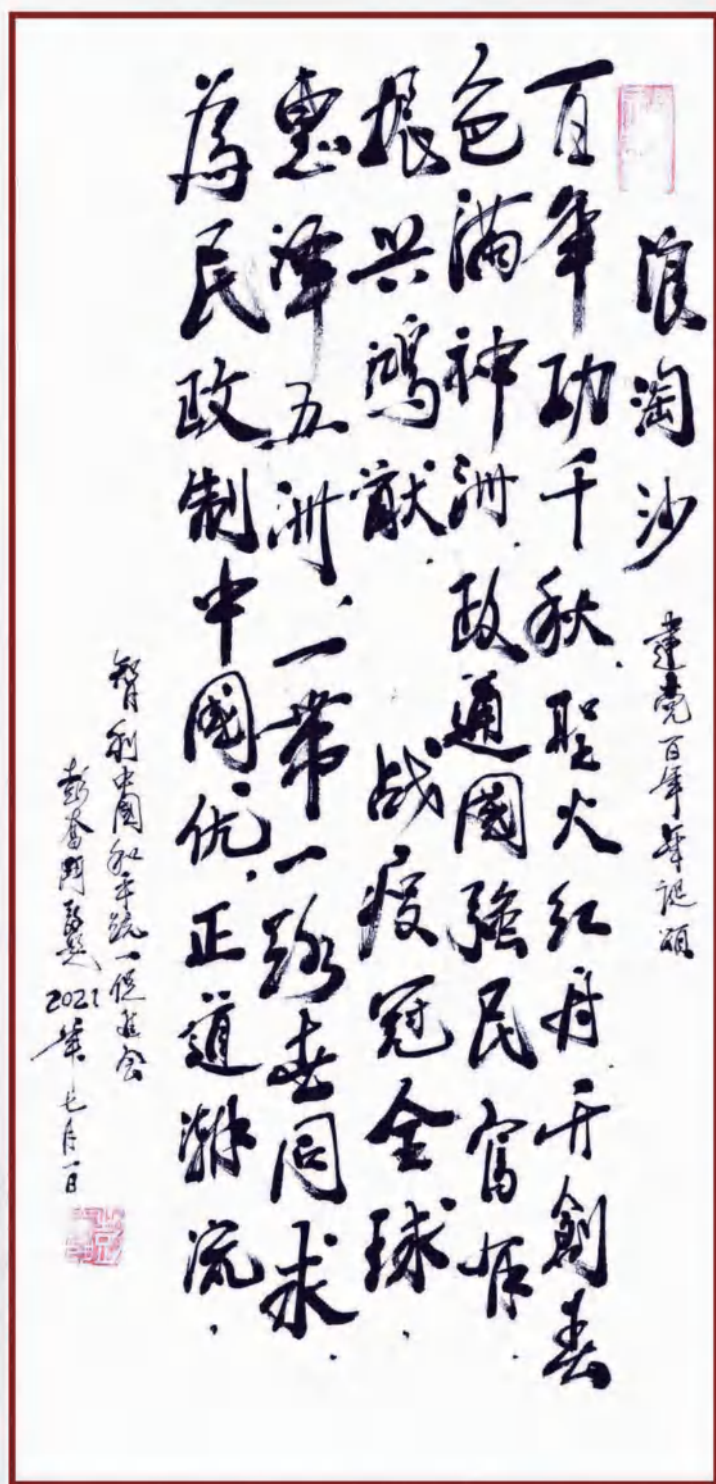 浪淘沙 建党百年年记颂
百年功千秋.圣火红舟开創春
色满神洲.政通國強民富有.
振兴鴻猷. 战疫冠全球.
惠澤五洲、一带一路共同求.
為民政制中國优.正道潮流.
智利中国和平统一促进会
彭奋鬥敬题 2021年七月一日